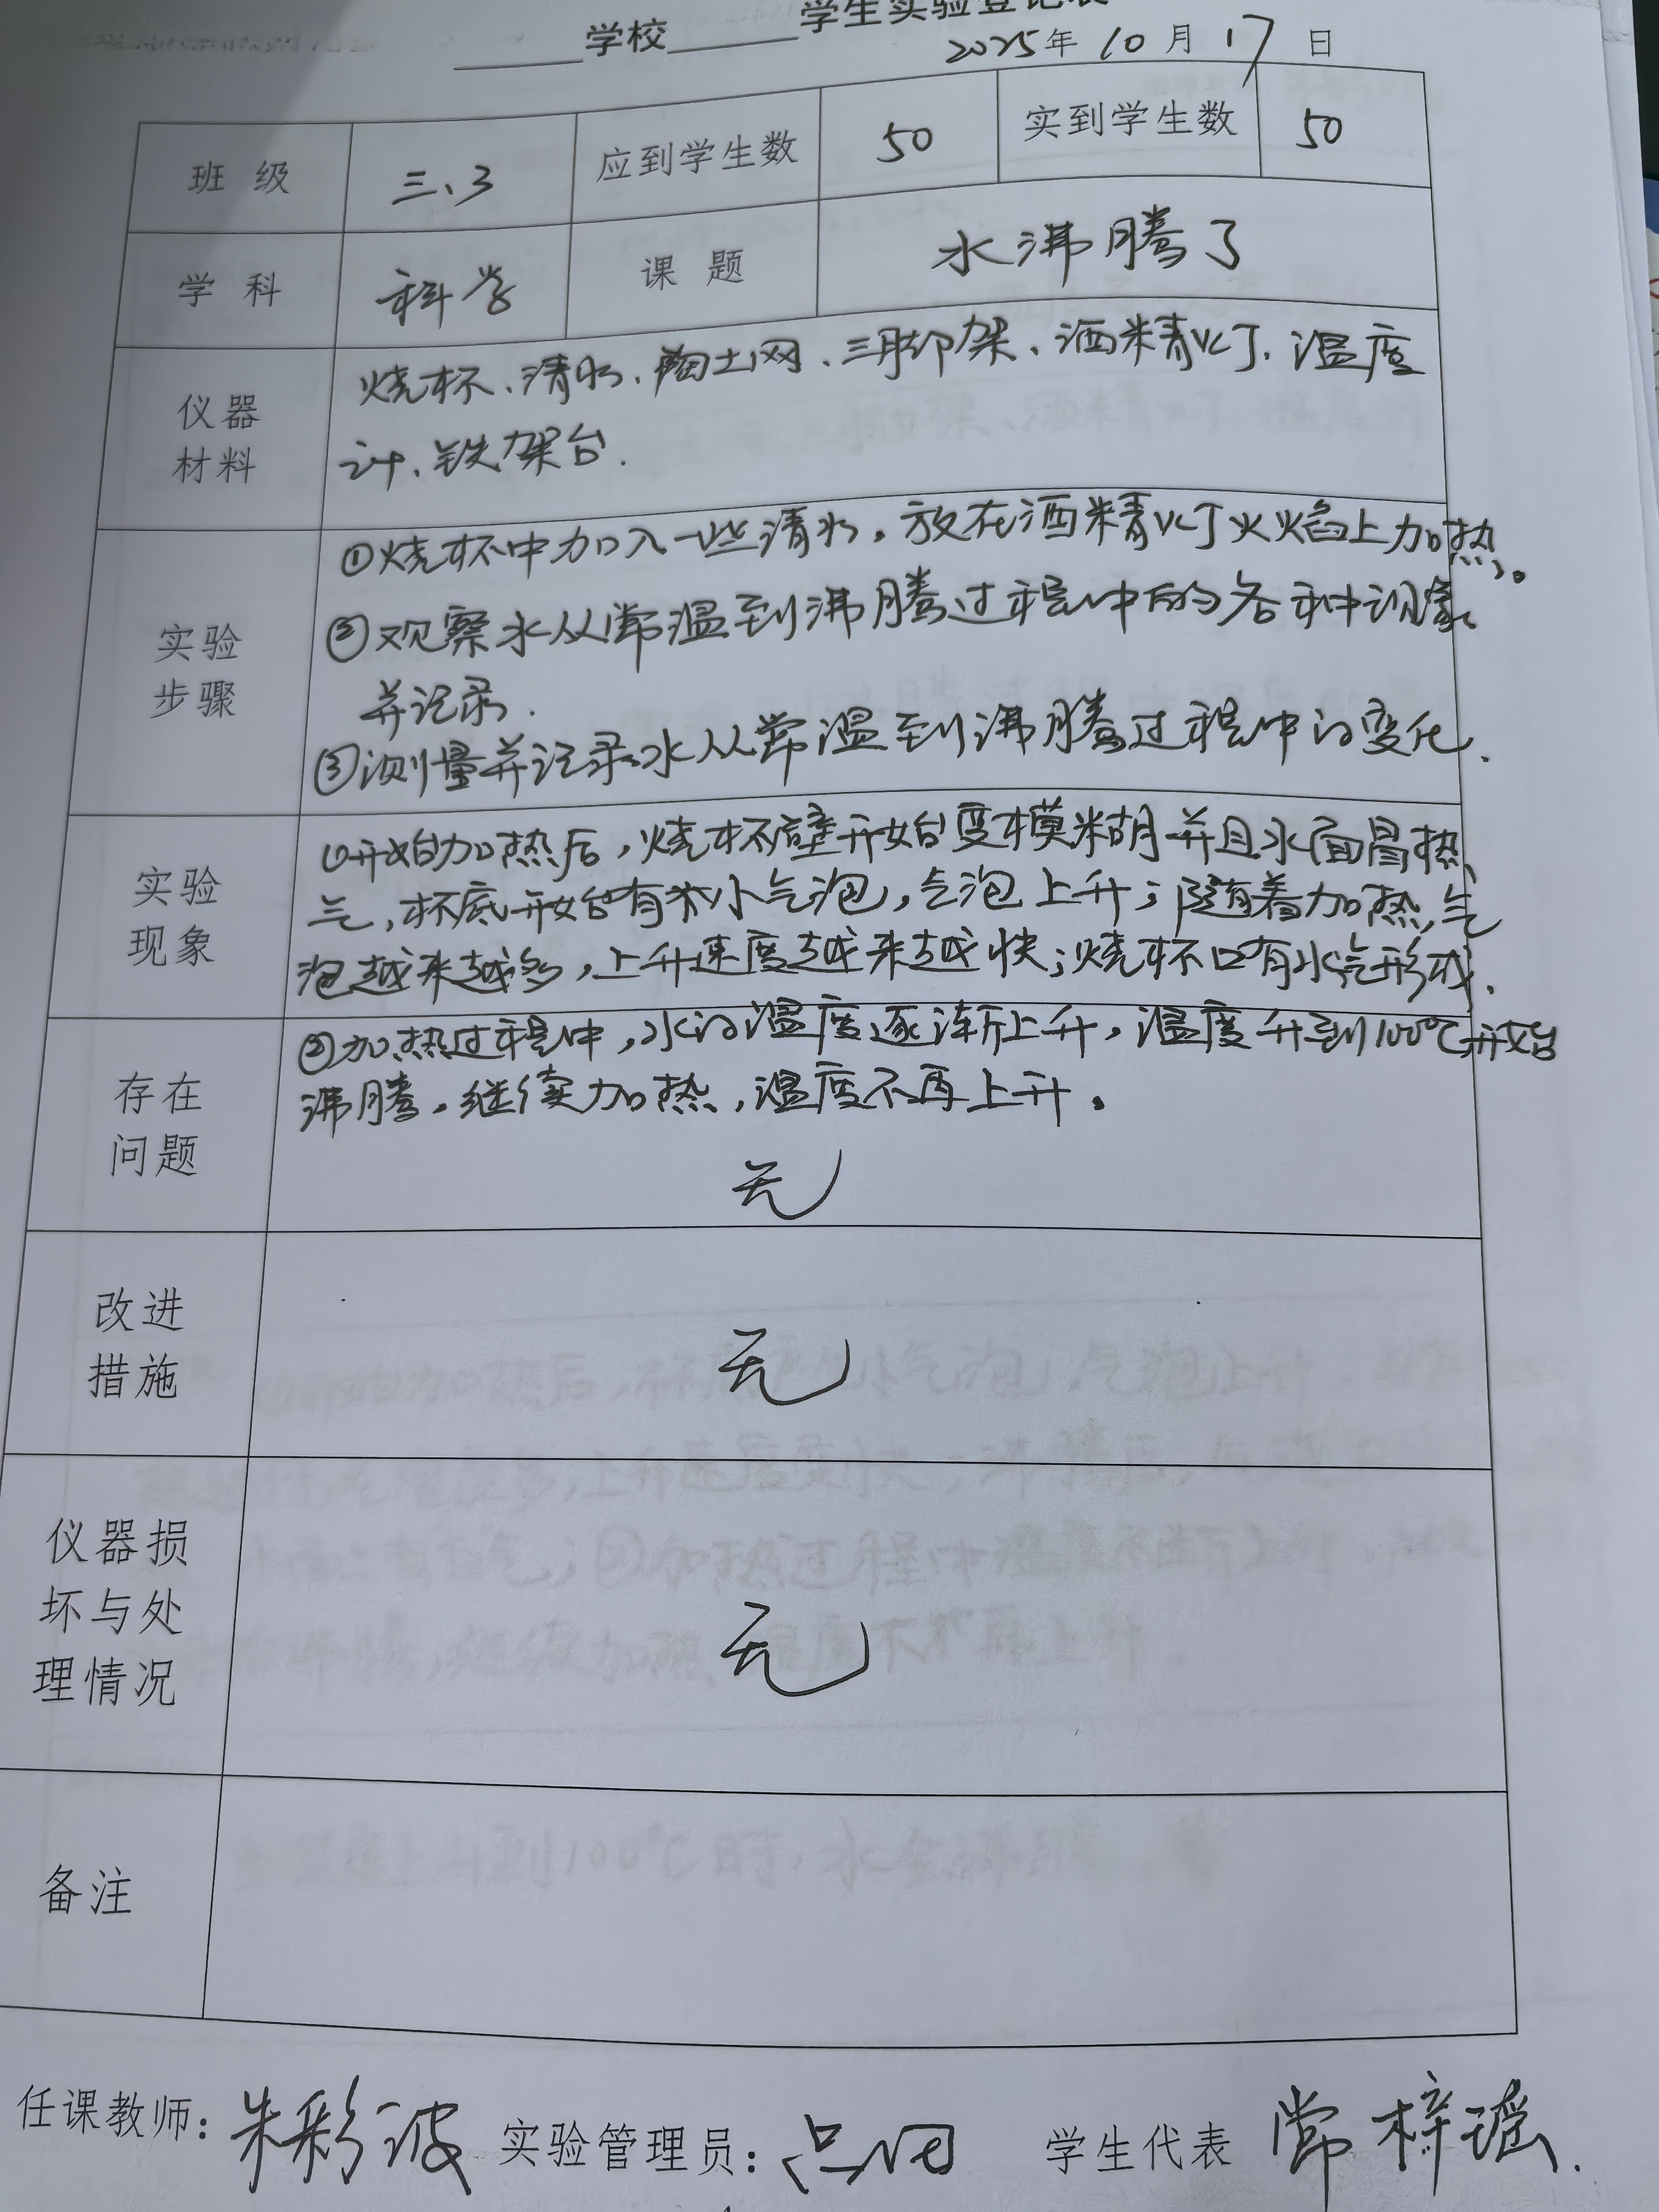 学校______学生实验登记表
2025年 10 月 17 日
班 级 三、3 应到学生数 50 实到学生数 50
学 科 科学 课 题 水沸腾了
仪器
材料
烧杯、清水、陶土网、三脚架、酒精灯、温度
计、铁架台.
实验
步骤
①烧杯中加入一些清水。放在酒精灯火焰上加热。
②观察水从常温到沸腾过程中的各种现象
并记录.
③测量并记录水从常温到沸腾过程中的变化.
实验
现象
①开始加热后,烧杯壁开始变模糊并且水面冒热
气,杯底开始有小气泡,气泡上升;随着加热,气
泡越来越多,上升速度越来越快;烧杯口有水汽形成.
存在
问题
②加热过程中,水的温度逐渐上升,温度升到100℃开始
沸腾。继续加热,温度不再上升。
无
改进
措施
无
仪器损
坏与处
理情况
无
备注
任课教师: 朱彩波 实验管理员: 学生代表 常梓瑶.